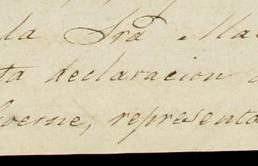 la Srª Ma
ta declaracion
oerne, representa